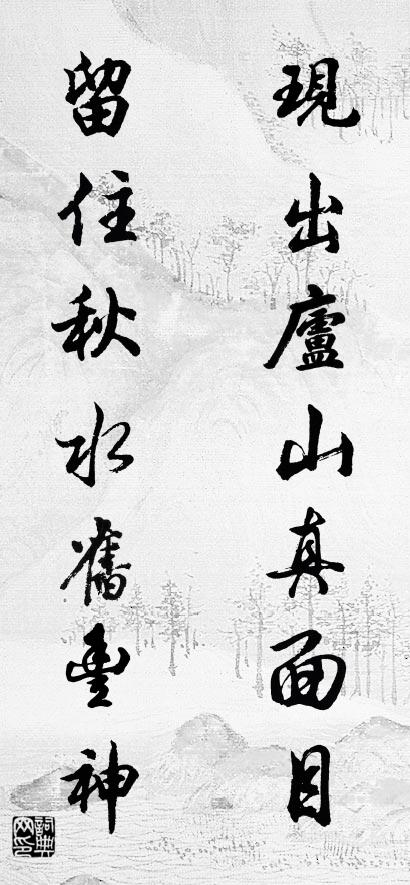 現出廬山真面目
留住秋水舊豐神
詞典网印